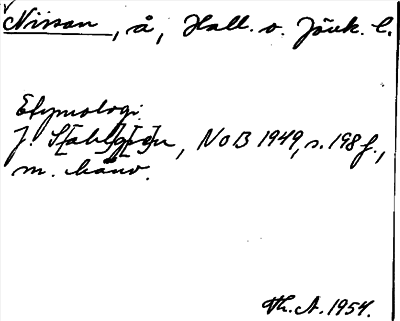 Nissan, å, Hall. o. Jönk. l.
Etymologi:
J. S[ahl]g[re]n, NoB 1949, s. 198 f.,
m. hänv.
Th. A. 1954.